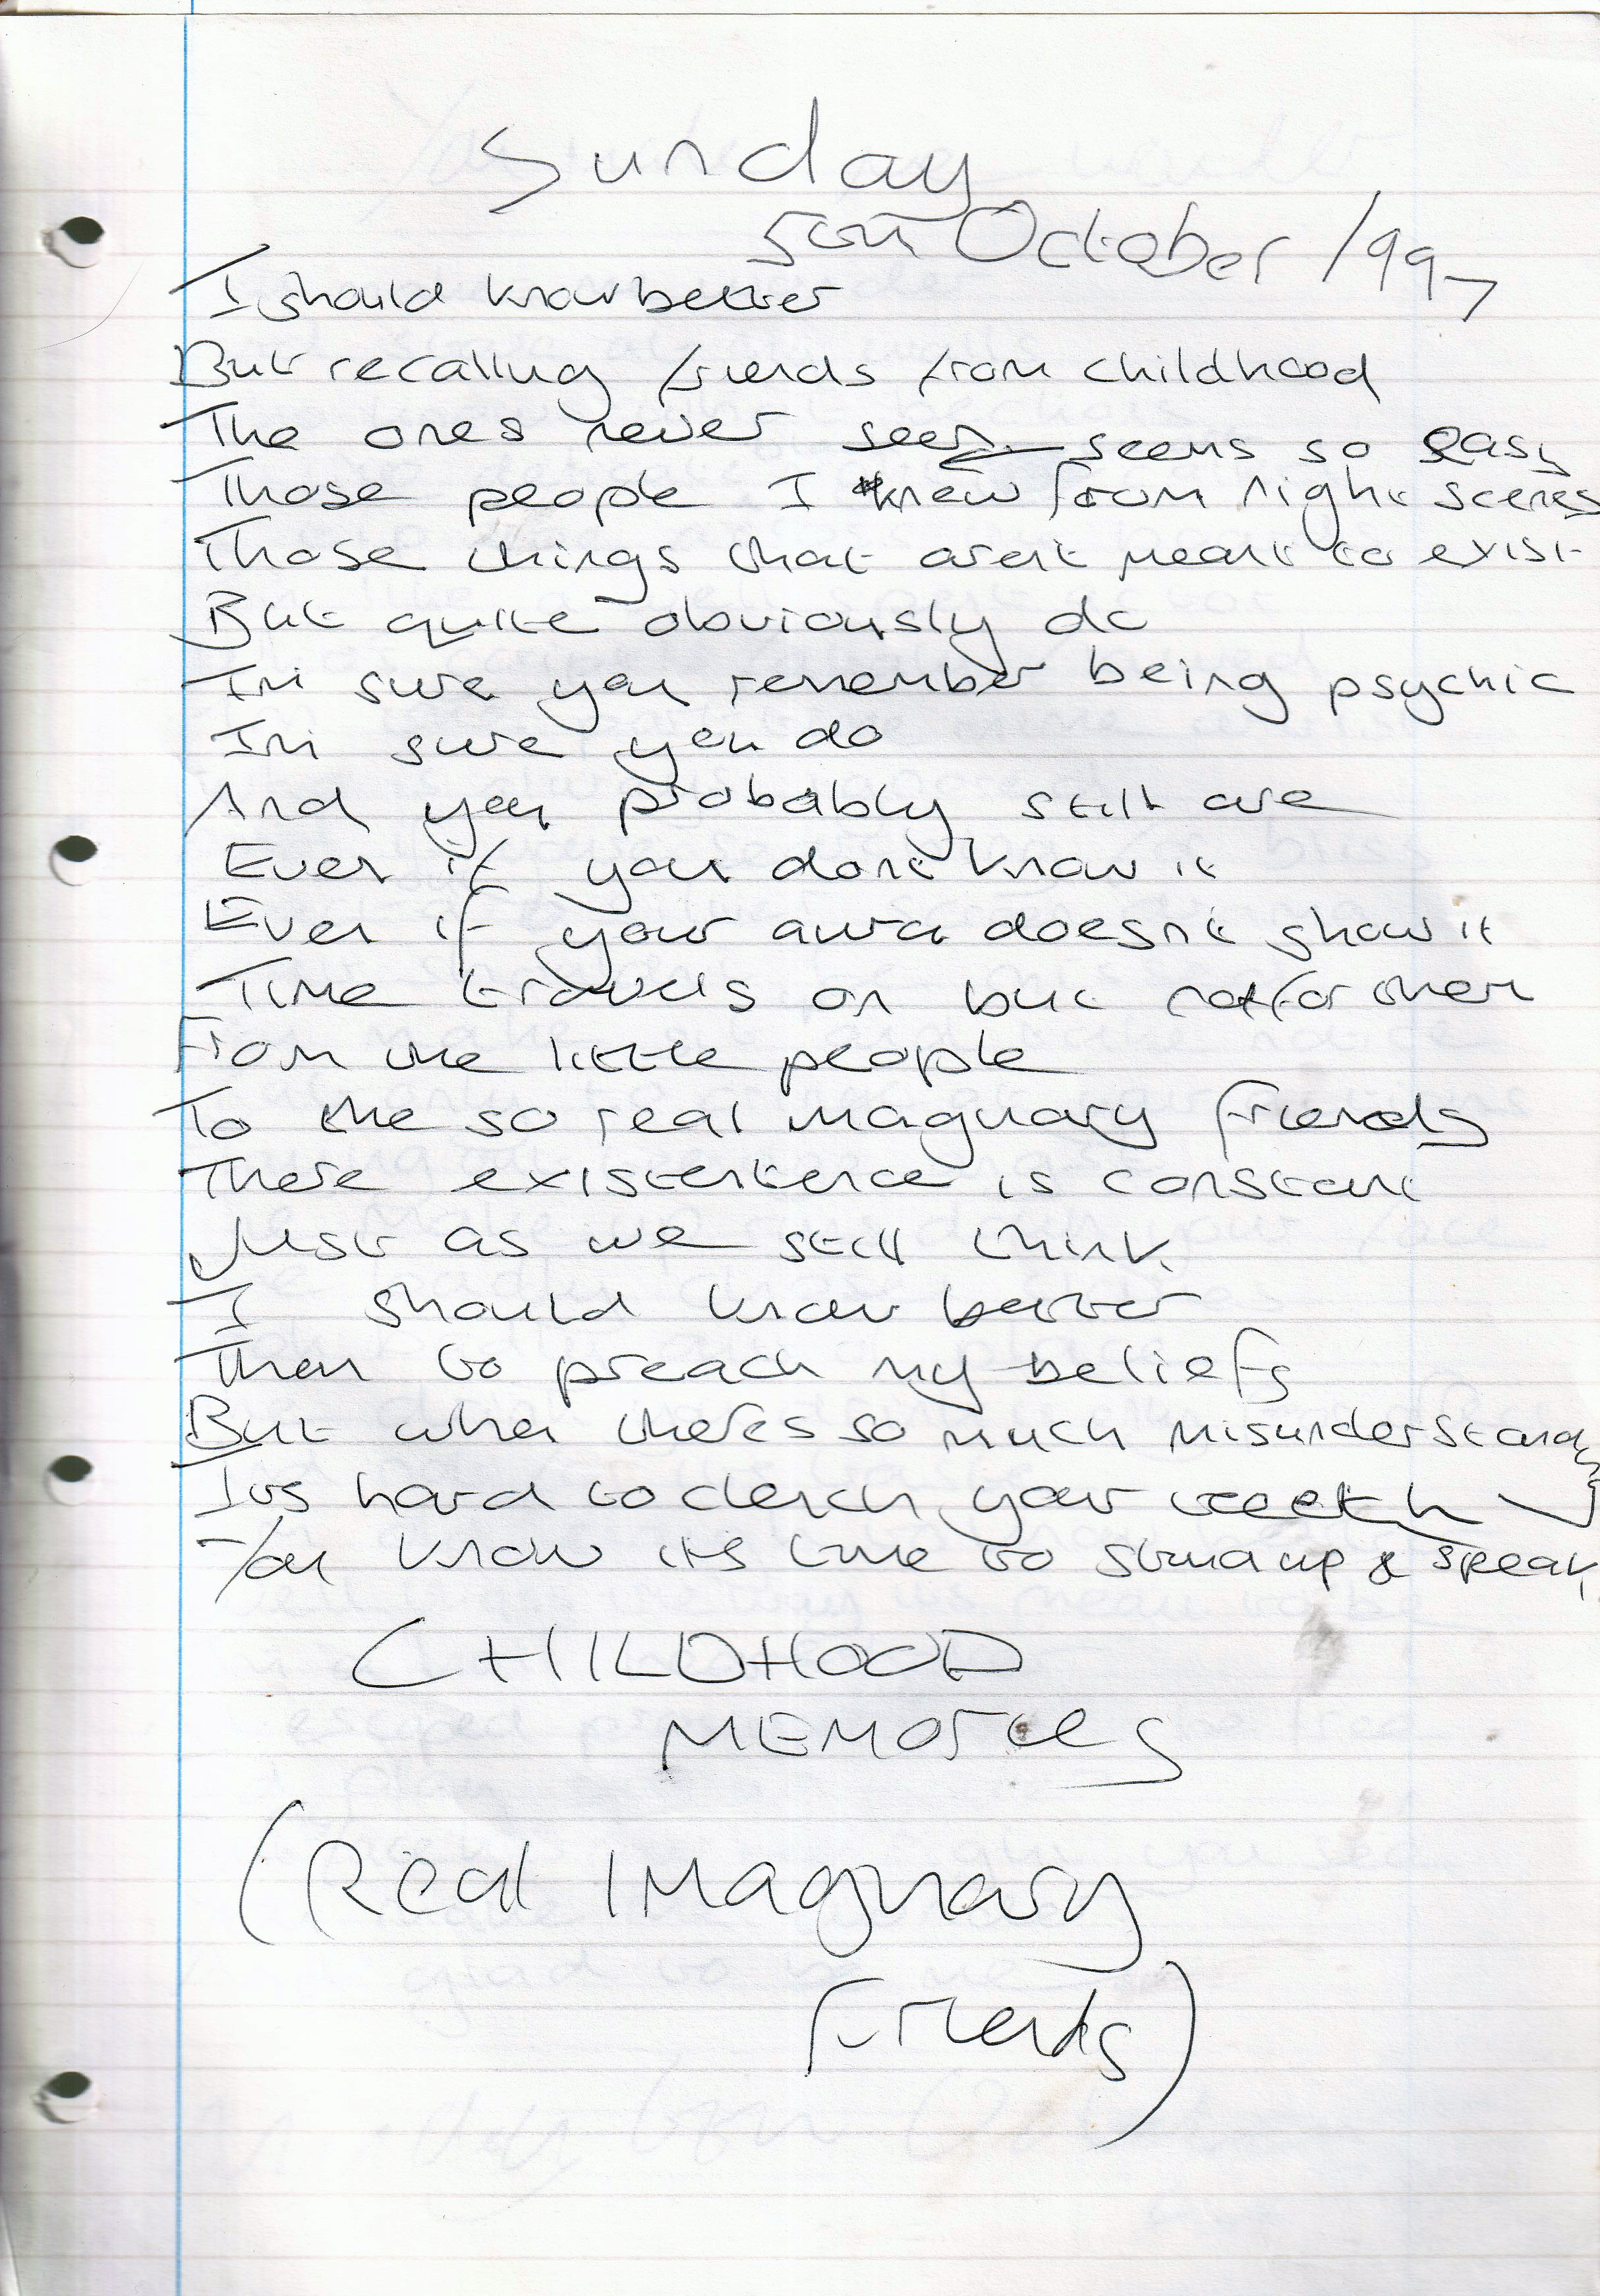 Sunday
5th October 1997
I should know better
But recalling friends from childhood
The ones never seen seems so easy
Those people I knew from night scenes
Those things that arent meant to exist
But quite obviously do
Im sure you remember being psychic
Im sure you do
And you probably still are
Even if you dont know it
Even if your aura doesnt show it
Time travels on but not for them
From the little people
To the so real imaginary friends
There existentence is constant
Just as we still think
I should know better
Then to preach my beliefs
But when theres so much misunderstanding
Its hard to clench your teeth
You know its time to stand up & speak
CHILDHOOD
MEMORIES
(Real Imaginary
Friends)